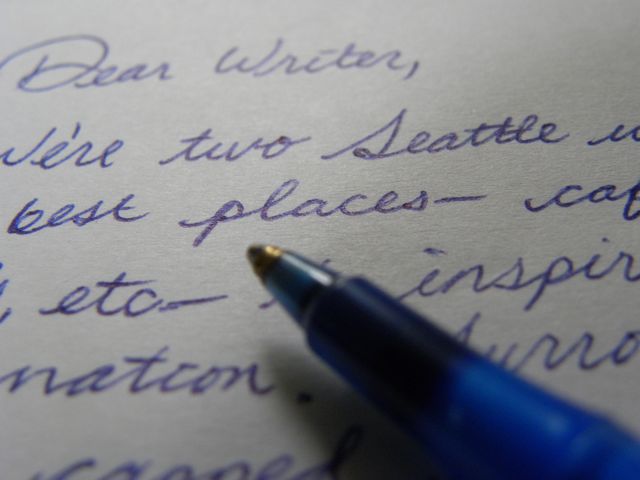 Dear Writer,
We're two Seattle
best places— caf
, etc— inspir
nation. surro